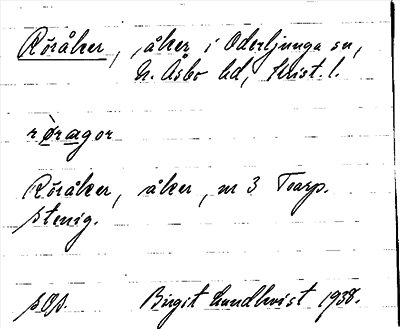 Röråker, åker i Oderljunga sn,
N. Åsbo hd, Krist. l.
Röråker, åker, nr 3 Toarp.
stenig.
Birgit Lundkvist 1938.